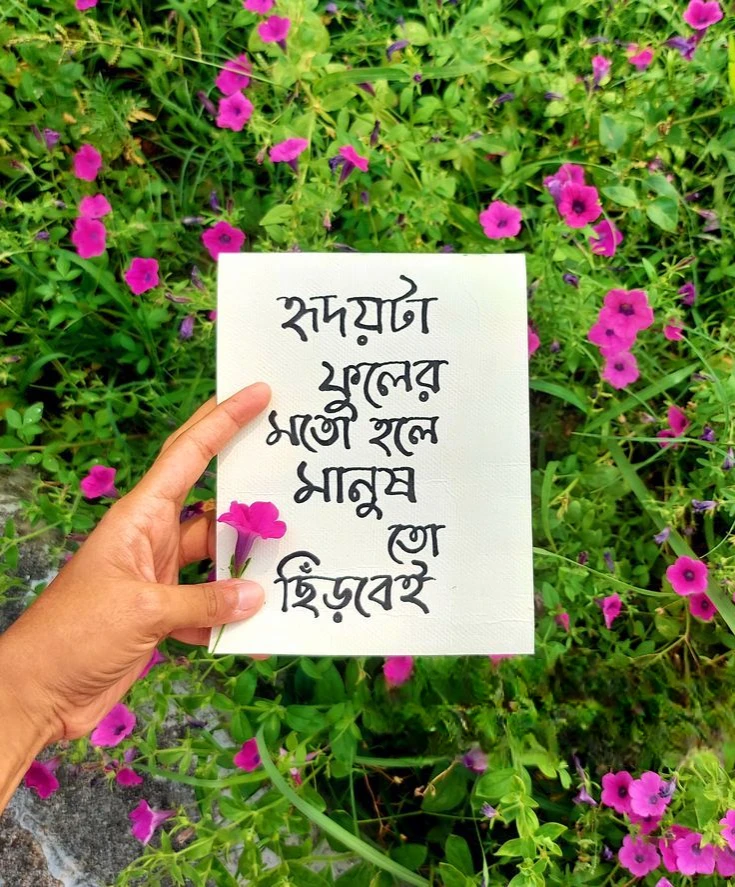 হৃদয়টা
ফুলের
মতো হলে
মানুষ
তো
ছিঁড়বেই